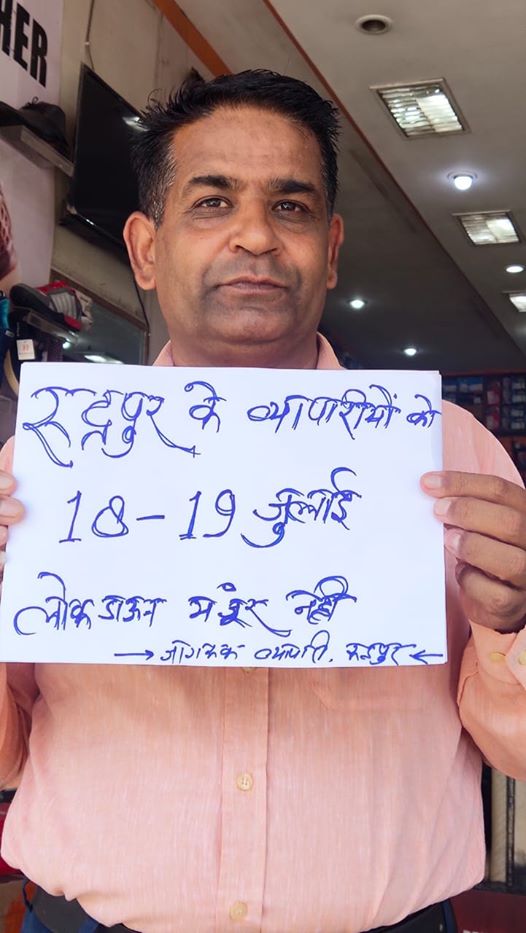 HER
रूद्रपुर के व्यापारीयों को
18-19 जुलाई
लोकडाऊन मंजूर नही
→ जागरूक व्यापारी, रूद्रपुर ←